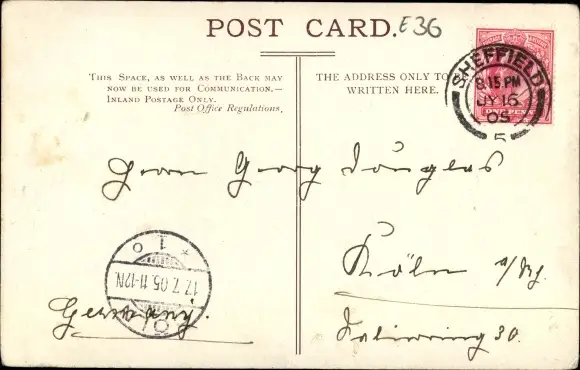 POST CARD.
E36
THIS SPACE, AS WELL AS THE BACK MAY
NOW BE USED FOR COMMUNICATION.—
INLAND POSTAGE ONLY.
Post Office Regulations.
THE ADDRESS ONLY TO BE
WRITTEN HERE.
SHEFFIELD
8.15 PM
JY 16
05
5
ONE PENNY
Herrn Georg Douglas
Köln a/Rh.
Salierring 30.
Germany.
17.7.05.11-12N.
* 1 o